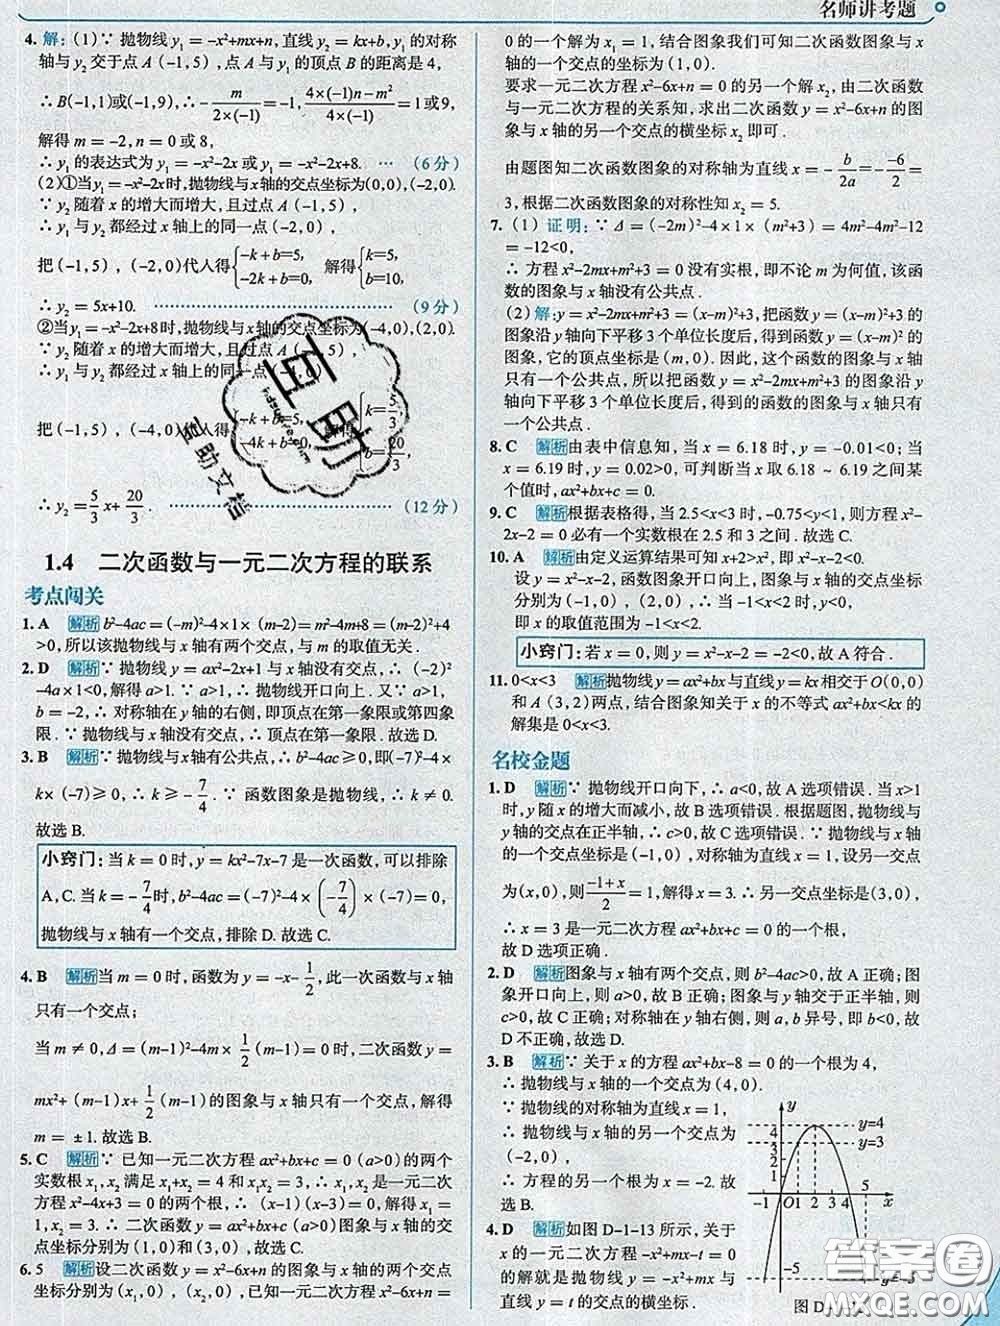 名师讲考题
4. 解: (1)∵ 抛物线 y₁ = -x²+mx+n, 直线 y₂ = kx+b, y₁ 的对称
轴与 y₂ 交于点 A(-1,5), 点 A 与 y₁ 的顶点 B 的距离是 4,
∴ B(-1,1)或(-1,9), ∴ -m/(2×(-1)) = -1, (4×(-1)n-m²)/(4×(-1)) = 1或9,
解得 m = -2, n = 0 或 8,
∴ y₁ 的表达式为 y₁ = -x²-2x 或 y₁ = -x²-2x+8. … (6 分)
(2)①当 y₁ = -x²-2x 时, 抛物线与 x 轴的交点坐标为(0,0), (-2,0).
∵ y₂ 随着 x 的增大而增大, 且过点 A(-1,5),
∴ y₁ 与 y₂ 都经过 x 轴上的同一点(-2,0),
把(-1,5), (-2,0)代人得{-k+b=5, -2k+b=0, 解得{k=5, b=10.
∴ y₂ = 5x+10. …………………… (9 分)
②当 y₁ = -x²-2x+8 时, 抛物线与 x 轴的交点坐标为(-4,0), (2,0).
∵ y₂ 随着 x 的增大而增大, 且过点 A(-1,5),
∴ y₁ 与 y₂ 都经过 x 轴上的同一点(-4,0),
把(-1,5), (-4,0)代入得{-k+b=5, -4k+b=0, 解得{k=5/3, b=20/3.
∴ y₂ = 5/3 x + 20/3. …………………… (12 分)
1.4 二次函数与一元二次方程的联系
考点闯关
1. A 解析 b²-4ac = (-m)²-4×1×(m-2) = m²-4m+8 = (m-2)²+4
>0, 所以该抛物线与 x 轴有两个交点, 与 m 的取值无关.
2. D 解析 ∵ 抛物线 y = ax²-2x+1 与 x 轴没有交点, ∴ (-2)²
-4a×1<0, 解得 a>1. ∵ a>1, ∴ 抛物线开口向上. 又∵ a>1,
b = -2, ∴ 对称轴在 y 轴的右侧, 即顶点在第一象限或第四象
限. ∵ 抛物线与 x 轴没有交点, ∴ 顶点在第一象限. 故选 D.
3. B 解析 ∵ 抛物线与 x 轴有公共点, ∴ b²-4ac≥0, 即(-7)²-4×
k×(-7)≥0, ∴ k≥-7/4. ∵ 函数图象是抛物线, ∴ k≠0.
故选 B.
小窍门: 当 k = 0 时, y = kx²-7x-7 是一次函数, 可以排除
A, C. 当 k = -7/4 时, b²-4ac = (-7)²-4×(-7/4)×(-7) = 0,
抛物线与 x 轴有一个交点, 排除 D. 故选 C.
4. B 解析 当 m = 0 时, 函数为 y = -x-1/2, 此一次函数与 x 轴
只有一个交点;
当 m ≠ 0, Δ = (m-1)²-4m×1/2(m-1) = 0 时, 二次函数 y =
mx²+(m-1)x+1/2(m-1)的图象与 x 轴只有一个交点, 解得
m = ±1. 故选 B.
5. C 解析 ∵ 已知一元二次方程 ax²+bx+c = 0(a≠0)的两个
实数根 x₁, x₂ 满足 x₁+x₂ = 4 和 x₁x₂ = 3, ∴ x₁, x₂ 是一元二次
方程 x²-4x+3 = 0 的两个根, ∴ (x-1)(x-3) = 0, 解得 x₁ =
1, x₂ = 3. ∴ 二次函数 y = ax²+bx+c(a≠0)图象与 x 轴的交点
坐标分别为(1,0)和(3,0), 故选 C.
6. 5 解析 设二次函数 y = x²-6x+n 的图象与 x 轴的两个交点
坐标分别为(x₁,0), (x₂,0), ∵ 已知一元二次方程 x²-6x+n =
0 的一个解为 x₁ = 1, 结合图象我们可知二次函数图象与 x
轴的一个交点的坐标为(1,0).
要求一元二次方程 x²-6x+n = 0 的另一个解 x₂, 由二次函数
与一元二次方程的关系知, 求出二次函数 y = x²-6x+n 的
图象与 x 轴的另一个交点的横坐标 x₂ 即可.
由题图知二次函数图象的对称轴为直线 x = -b/2a = -(-6)/2 =
3, 根据二次函数图象的对称性知 x₂ = 5.
7. (1) 证明: ∵ Δ = (-2m)²-4×1×(m²+3) = 4m²-4m²-12
= -12<0,
∴ 方程 x²-2mx+m²+3 = 0 没有实根, 即不论 m 为何值, 该函
数的图象与 x 轴没有公共点.
(2) 解: y = x²-2mx+m²+3 = (x-m)²+3, 把函数 y = (x-m)²+3 的
图象沿 y 轴向下平移 3 个单位长度后, 得到函数 y = (x-m)² 的
图象, 它的顶点坐标是(m,0). 因此, 这个函数的图象与 x 轴
只有一个公共点, 所以把函数 y = x²-2mx+m²+3 的图象沿 y
轴向下平移 3 个单位长度后, 得到的函数的图象与 x 轴只有
一个公共点.
8. C 解析 由表中信息知, 当 x = 6.18 时, y = -0.01<0; 当
x = 6.19 时, y = 0.02>0, 可判断当 x 取 6.18 ~ 6.19 之间某
个值时, ax²+bx+c = 0.
9. C 解析 根据表格得, 当 2.5<x<3 时, -0.75<y<1, 则方程
x²-2x-2 = 0 必有一个实数根在 2.5 和 3 之间. 故选 C.
10. A 解析 由定义运算结果可知 x+2>x², 即 x²-x-2<0.
设 y = x²-x-2, 函数图象开口向上, 与 x 轴的交点坐标
分别为(-1,0), (2,0), ∴ 当 -1<x<2 时, y<0,
即 x 的取值范围为 -1<x<2.
小窍门: 若 x = 0, 则 y = x²-x-2 = -2<0, 故 A 符合.
11. 0<x<3 解析 抛物线 y = ax²+bx 与直线 y = kx 相交于 O(0,0)
和 A(3,2)两点, 结合图象知关于 x 的不等式 ax²+bx<kx 的
解集是 0<x<3.
名校金题
1. D 解析 ∵ 抛物线开口向下, ∴ a<0, 故 A 选项错误. 当 x>
1 时, y 随 x 的增大而减小, 故 B 选项错误. 根据题图, 抛物线与
y 轴的交点在正半轴, ∴ c>0, 故 C 选项错误. ∵ 抛物线与 x
轴的一个交点坐标是(-1,0), 对称轴是直线 x=1, 设另一交点
为(x,0), 则(-1+x)/2 = 1, 解得 x = 3. ∴ 另一交点坐标是(3,0),
∴ x = 3 是一元二次方程 ax²+bx+c = 0 的一个根,
故 D 选项正确.
2. D 解析 图象与 x 轴有两个交点, 则 b²-4ac>0, 故 A 正确; 图
象开口向上, 则 a>0, 故 B 正确; 图象与 y 轴交于正半轴, 则
c>0, 故 C 正确; 对称轴在 y 轴右侧, 则 a, b 异号, 即 ab<0, 故
D 不正确, 故选 D.
3. B 解析 ∵ 关于 x 的方程 ax²+bx-8 = 0 的一个根为 4,
∴ 抛物线与 x 轴的一个交点为(4,0).
∵ 抛物线的对称轴为直线 x = 1,
∴ 抛物线与 x 轴的另一个交点为
(-2,0),
∴ 方程的另一个根为 x = -2. 故
选 B.
4. D 解析 如图 D-1-13 所示, 关于
x 的一元二次方程 -x²+mx-t = 0
的解就是抛物线 y = -x²+mx 与
直线 y = t 的交点的横坐标.
y
4
3
2
1
-1 O 1 2 3 4 5 x
y=4
y=3
-5
图 D-1-13
百助
互助文档
答案圈
MXQE.COM